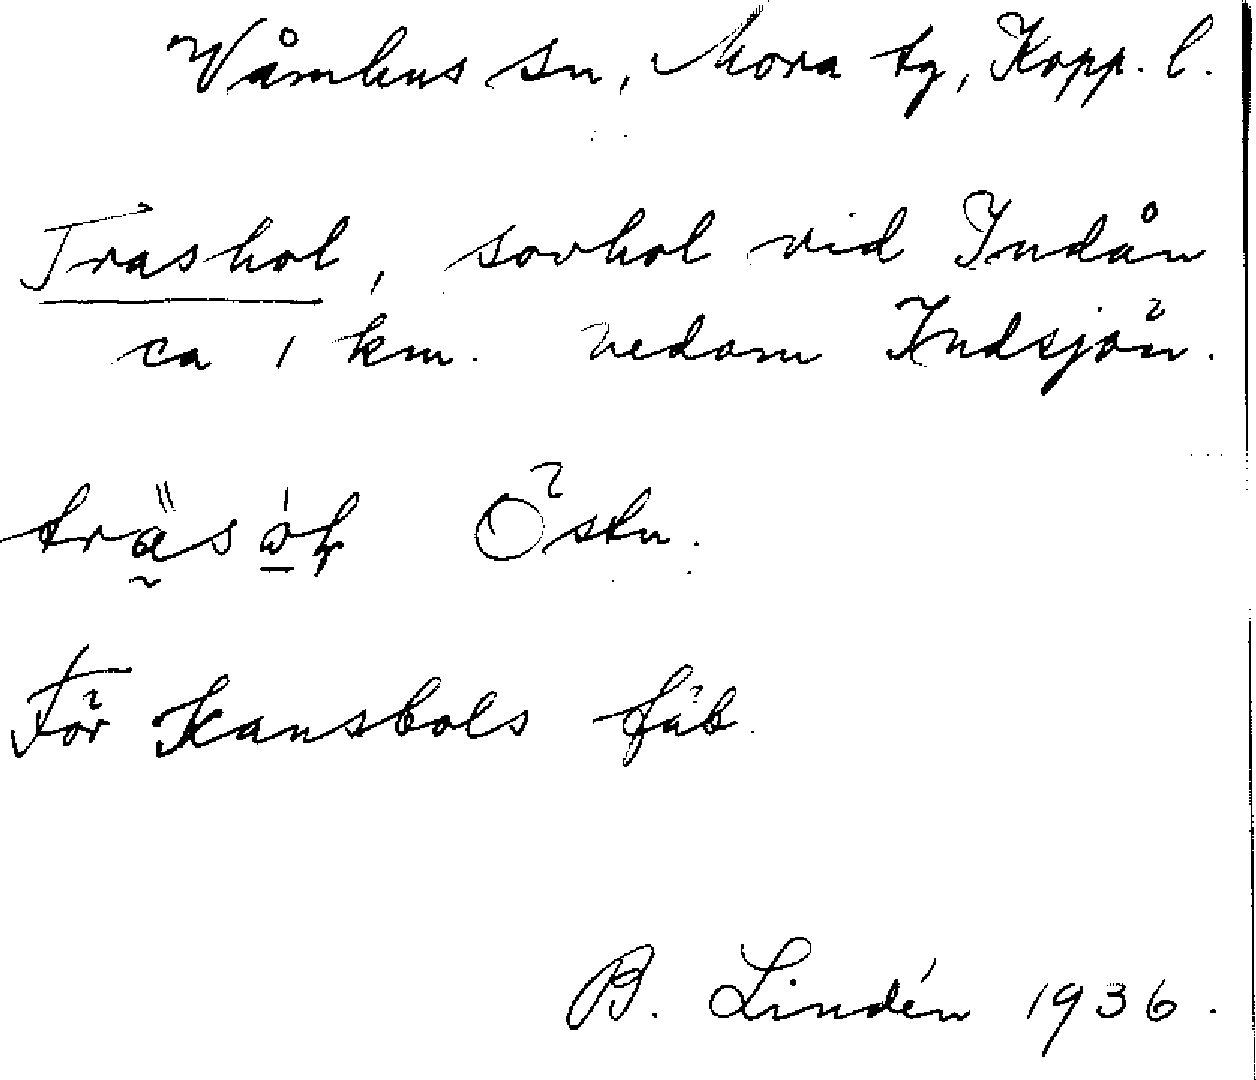 Våmhus sn, Mora tg, Kopp. l.
Träshol, sovhol vid Indån
ca 1 km. nedom Indsjön.
Östn.
För Kansbols fäb.
B. Lindén 1936.